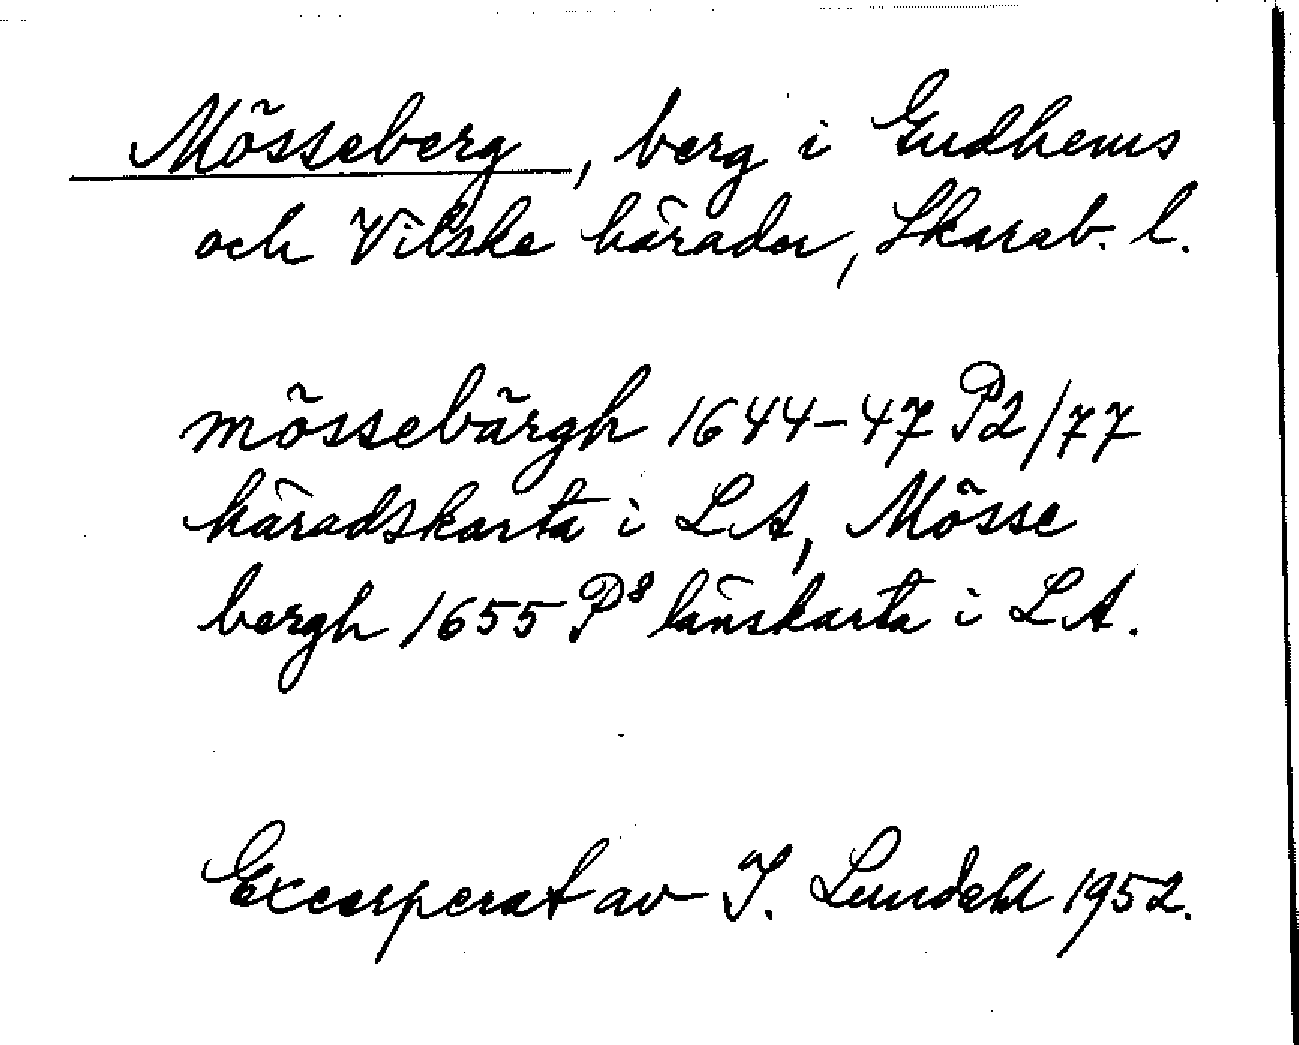 Mösseberg, berg i Gudhems
och Vilske härader, Skarab. l.
mössebärgh 1644-47 P2/77
häradskarta i LA, Mösse
bergh 1655 P8 länskarta i LA.
Excerperat av I. Lundahl 1952.